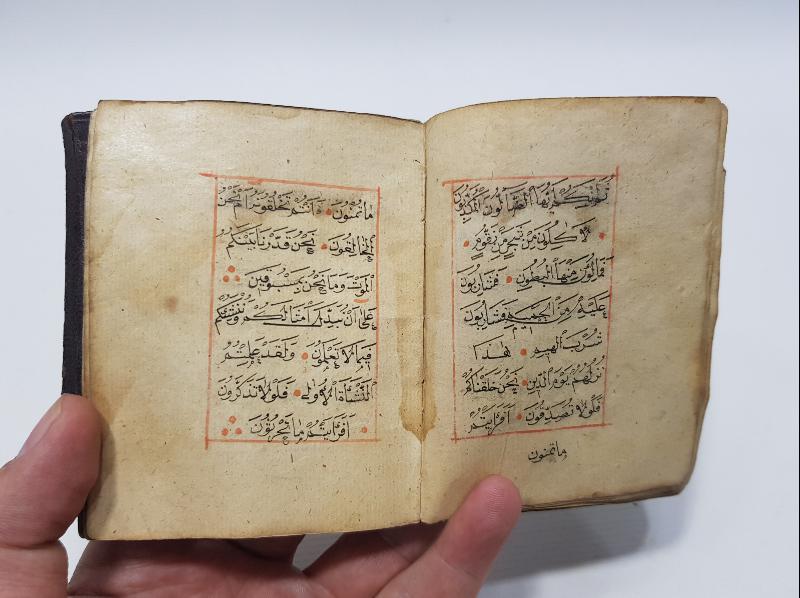 ثُمَّ اِنَّكُمْ اَيُّهَا الضَّالُّونَ الْمُكَذِّبُونَ
لَاٰكِلُونَ مِنْ شَجَرٍ مِنْ زَقُّومٍ
فَمَالِؤُنَ مِنْهَا الْبُطُونَ فَشَارِبُونَ
عَلَيْهِ مِنَ الْحَمِيمِ فَشَارِبُونَ
شُرْبَ الْهِيمِ هٰذَا
نُزُلُهُمْ يَوْمَ الدِّينِ نَحْنُ خَلَقْنَاكُمْ
فَلَوْلَا تُصَدِّقُونَ اَفَرَاَيْتُمْ
مَا تُمْنُونَ
مَا تُمْنُونَ ءَاَنْتُمْ تَخْلُقُونَهُ اَمْ نَحْنُ
الْخَالِقُونَ نَحْنُ قَدَّرْنَا بَيْنَكُمُ
الْمَوْتَ وَمَا نَحْنُ بِمَسْبُوقِينَ
عَلٰى اَنْ نُبَدِّلَ اَمْثَالَكُمْ وَنُنْشِئَكُمْ
فِيمَا لَا تَعْلَمُونَ وَلَقَدْ عَلِمْتُمُ
النَّشْاَةَ الْاُولٰى فَلَوْلَا تَذَكَّرُونَ
اَفَرَاَيْتُمْ مَا تَحْرُثُونَ